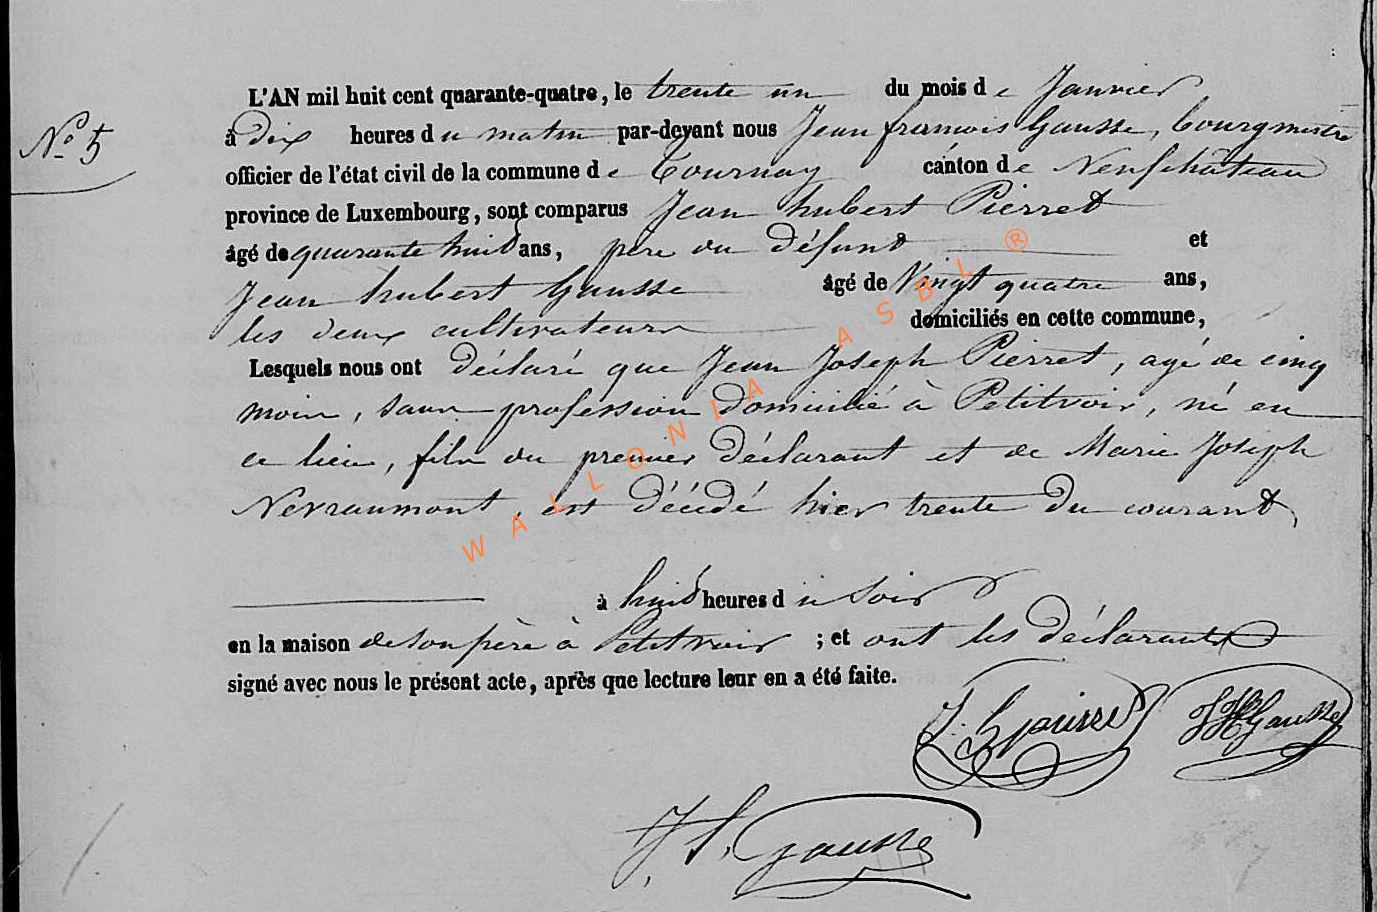 L'AN mil huit cent quarante-quatre, le trente un du mois de Janvier
N° 5
à dix heures du matin par-devant nous Jean françois Gausse, bourgmestre
officier de l'état civil de la commune de Tournay canton de Neufchâteau
province de Luxembourg, sont comparus Jean hubert Pierret
âgé de quarante huit ans, père du défunt et
Jean hubert Gausse âgé de Vingt quatre ans,
les deux cultivateurs domiciliés en cette commune,
Lesquels nous ont déclaré que Jean Joseph Pierret, agé de cinq
mois, sans profession domicilié à Petitvoir, né en
ce lieu, fils du premier déclarant et de Marie Joseph
Nevraumont, est décédé hier trente du courant,
à huit heures du soir
en la maison de son père à Petitvoir ; et ont les déclarants
signé avec nous le présent acte, après que lecture leur en a été faite.
J. h pierret JH Gausse
J. f. Gausse
WALLONIA ASBL ®